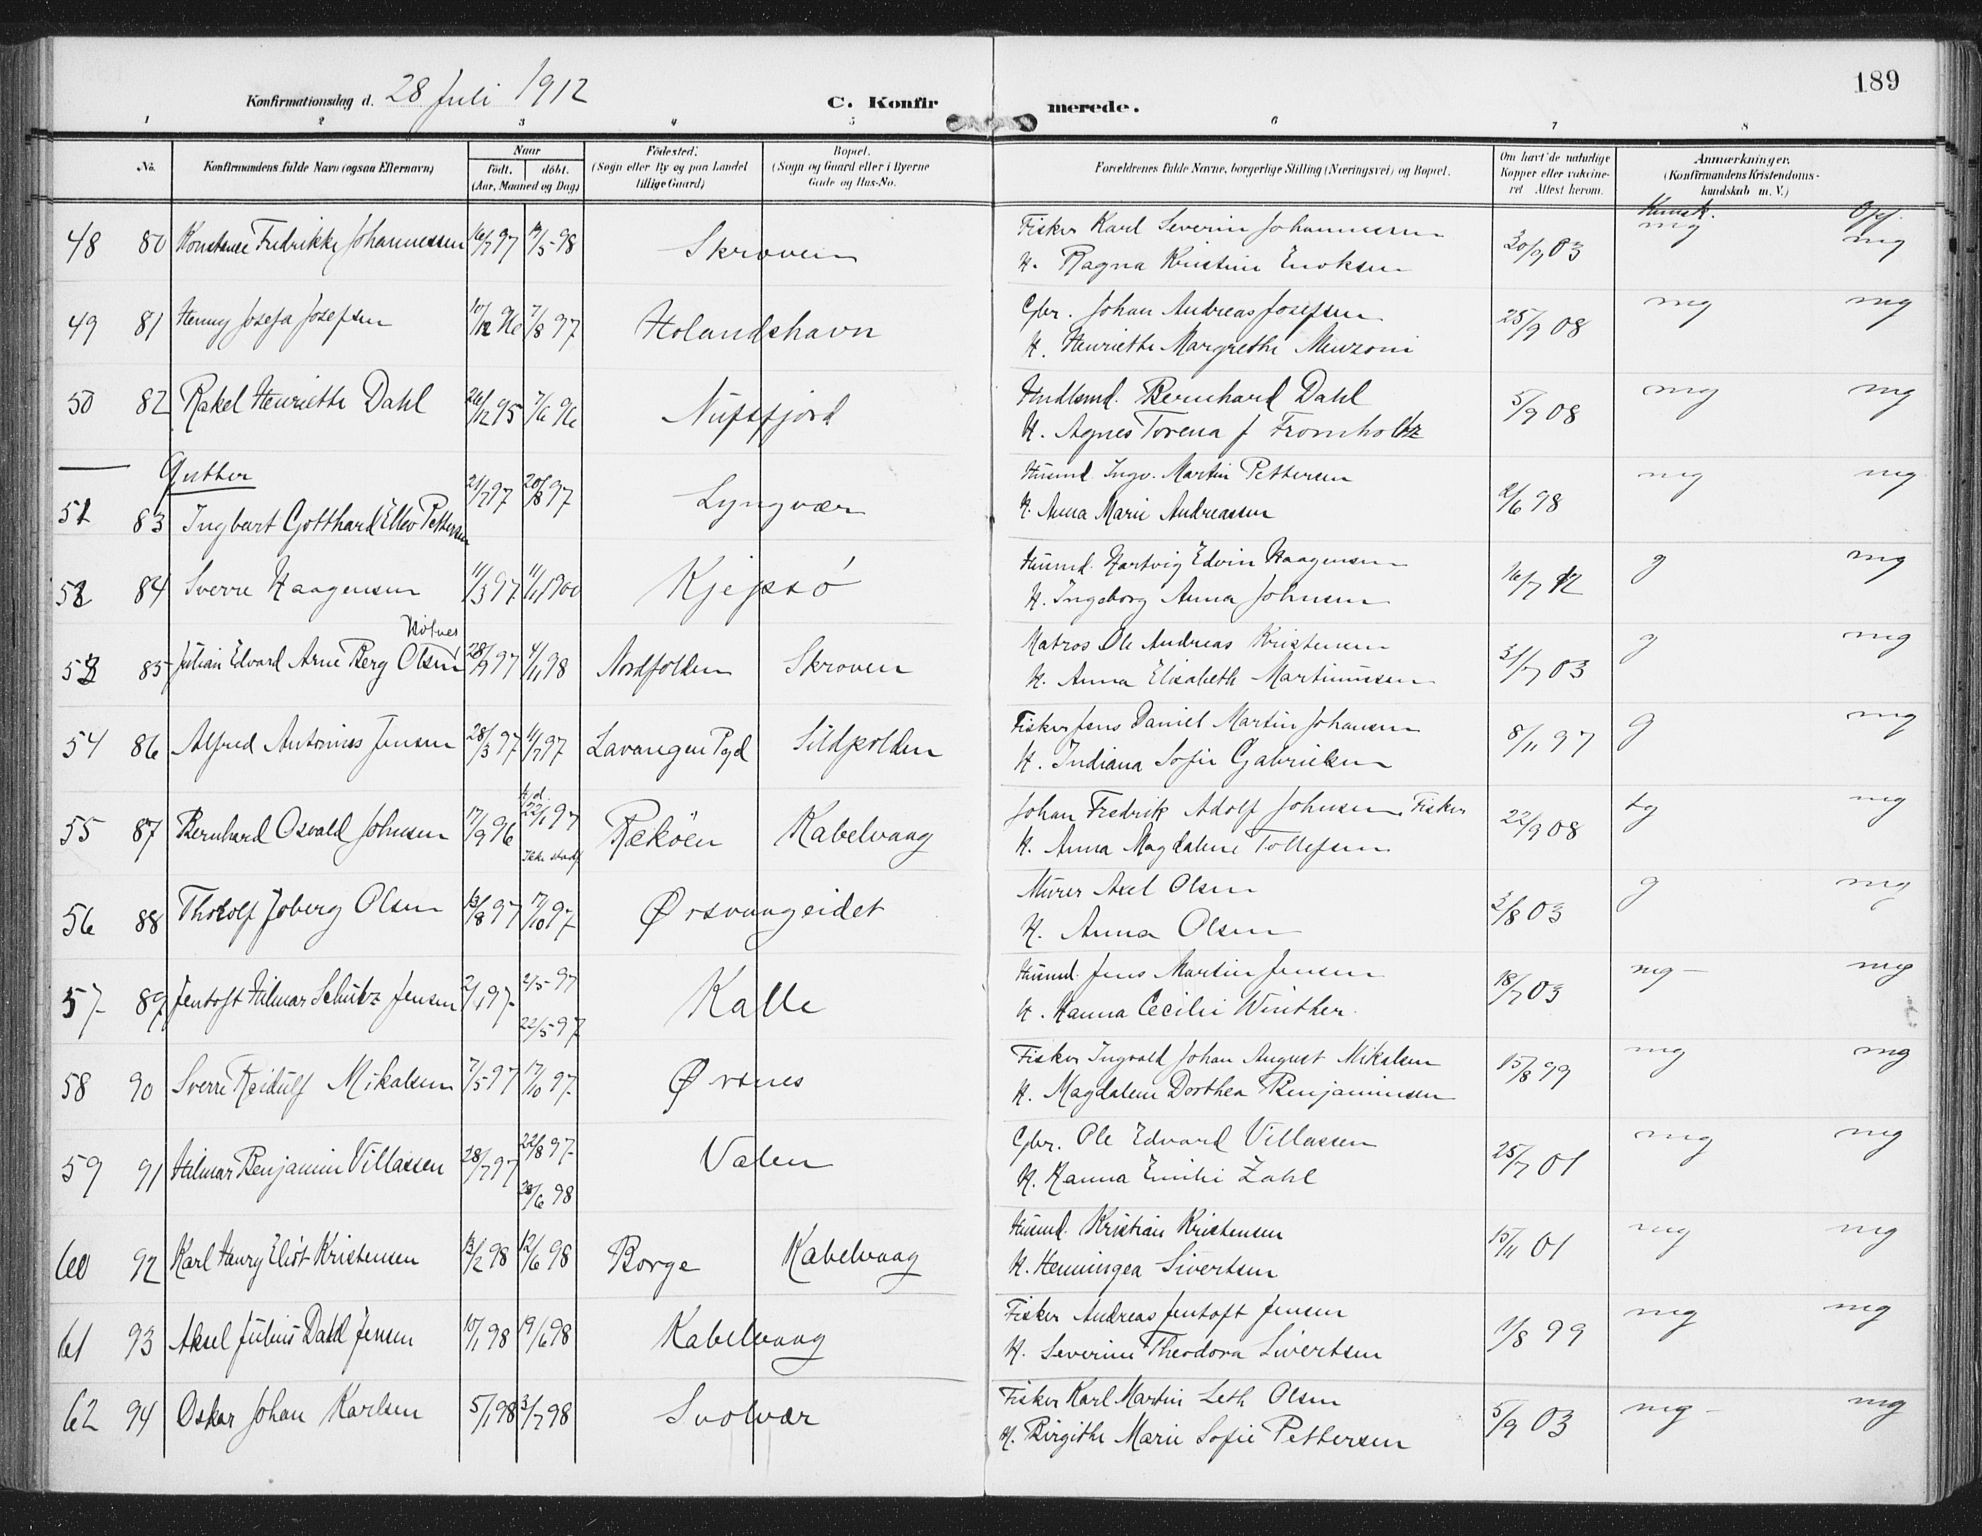 Konfirmationsdag d. 28 Juli 1912
C. Konfirmerede.
189
1 2 3 4 5 6 7 8
No. Konfirmandens fulde Navn (ogsaa Efternavn) Naar födt. döbt. (Aar, Maaned og Dag) Födested. (Sogn eller By og paa Landet tillige Gaard) Bopæl. (Sogn og Gaard eller i Byerne Gade og Hus-No. Forældrenes fulde Navne, borgerlige Stilling (Næringsvei) og Bopæl. Om havt de naturlige Kopper eller vakcineret Attest herom. Anmærkninger. (Konfirmandens Kristendomskundskab m. V.)
Kunsk. Opf.
48 80 Konstanse Fredrikke Johannessen 16/7 97 /5 98 Skroven Fisker Karl Severin Johannessen 30/9 03 mg mg
H. Ragna Kristine Enoksen
49 81 Henny Josefa Josefsen 10/12 96 7/8 97 Holandshavn Gbr. Johan Andreas Josefsen 25/9 08 mg mg
H. Henriette Margrethe Meuzoni
50 82 Rakel Henriette Dahl 26/12 95 7/6 96 Nufsfjord Hndlsmd. Bernhard Dahl 5/9 08 mg mg
H. Agnes Torena f Fromholtz
Gutter
51 83 Ingbart Gotthard Ellev Pettersen 21/7 97 20/8 97 Lyngvær Husmd. Ingv. Martin Pettersen 2/6 98 mg mg
H. Anna Marie Andreassen
52 84 Sverre Haagensen 11/3 97 11/1 1900 Kjepsö Husmd. Hartvig Edvin Haagensen 16/7 12 g mg
H. Ingeborg Anna Johnsen
53 85 Julian Edvard Arne Berg Olsen 28/9 97 4/1 98 Nordfolden Skroven Matros Ole Andreas Kristensen 31/7 03 g mg
H. Anna Elisabeth Martinussen
54 86 Alfred Antonius Jensen 28/3 97 11/7 97 Lavangen Pgd Sildpolden Fisker Jens Daniel Martin Johansen 8/11 97 g mg
H. Indiana Sofie Gabrielsen
55 87 Bernhard Osvald Johnsen 17/9 96 hjd. 22/1 97 Ikke stadf Rekøen Kabelvaag Johan Fredrik Adolf Johnsen Fisker 22/9 08 tg mg
H. Anna Magdalene Tollefsen
56 88 Thorolf Joberg Olsen 13/8 97 17/10 97 Ørsvaageidet Murer Axel Olsen 3/8 03 g mg
H. Anna Olsen
57 89 Jentoft Hilmar Schutz Jensen 2/1 97 2/5 97 22/5 97 Kalle Husmd. Jens Martin Jensen 18/7 03 mg - mg
H. Hanna Cecilie Winther.
58 90 Sverre Reidulf Mikalsen 7/5 97 17/10 97 Ørsnes Fisker Ingvald Johan August Mikalsen 15/8 99 mg mg
H. Magdalene Dorthea Benjaminsen
59 91 Hilmar Benjamin Villassen 28/7 97 22/8 97 /6 98 Valen Gbr. Ole Edvard Villassen 25/7 01 mg mg
H. Hanna Emilie Zahl
60 92 Karl Henry Eliot Kristensen 13/2 98 12/6 98 Borge Kabelvaag Husmd. Kristian Kristensen 15/11 01 mg mg
H. Henningea Sivertsen
61 93 Aksel Julius Dahl Jensen 10/1 98 19/6 98 Kabelvaag Fisker Andreas Jentoft Jensen /8 99 mg mg
H. Severine Theodora Sivertsen
62 94 Oskar Johan Karlsen 5/1 98 3/7 98 Svolvær Fisker Karl Martin Leth Olsen 5/9 03 mg - mg
H. Birgithe Marie Sofie Pettersen